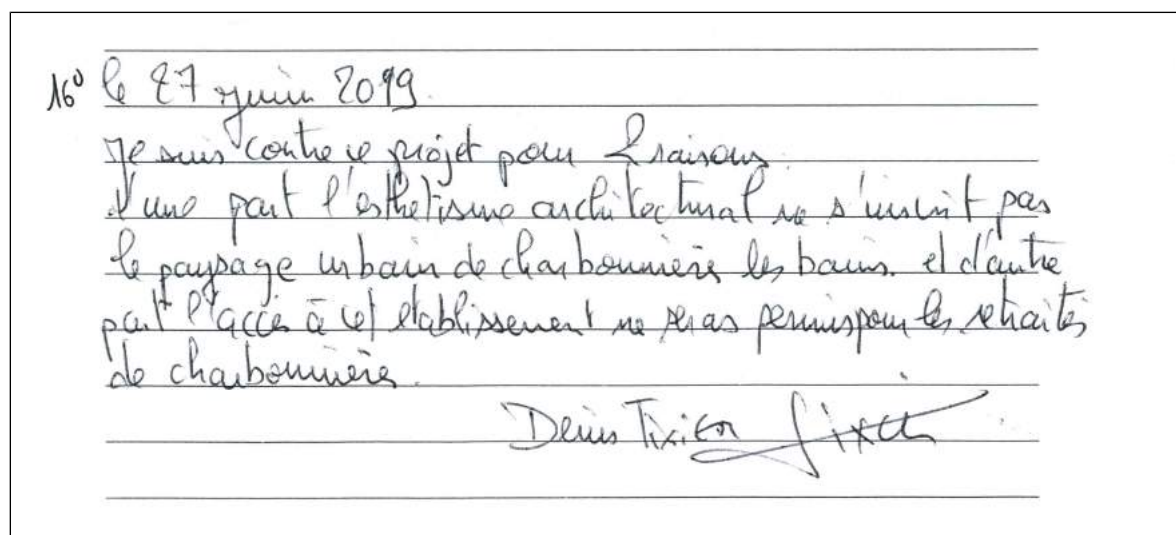 16° le 27 juin 2019.
Je suis contre ce projet pour 2 raisons.
d'une part l'esthetisme architectural ne s'inscrit pas
le paysage urbain de charbonnière les bains. et d'autre
part l'accès à cet etablissement ne seras permis pour les retraités
de charbonnière.
Denis Tixier Tixier